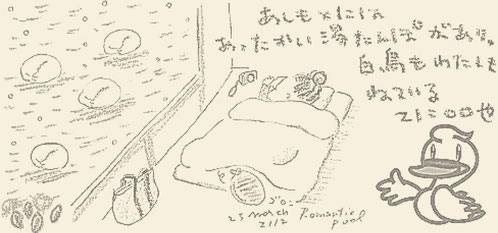 あしもとには
あったかい湯たんぽがある。
白鳥もわたしも
ねている
ZIZOO也
ゴロ〜
25 march
2112
Romantic
pool